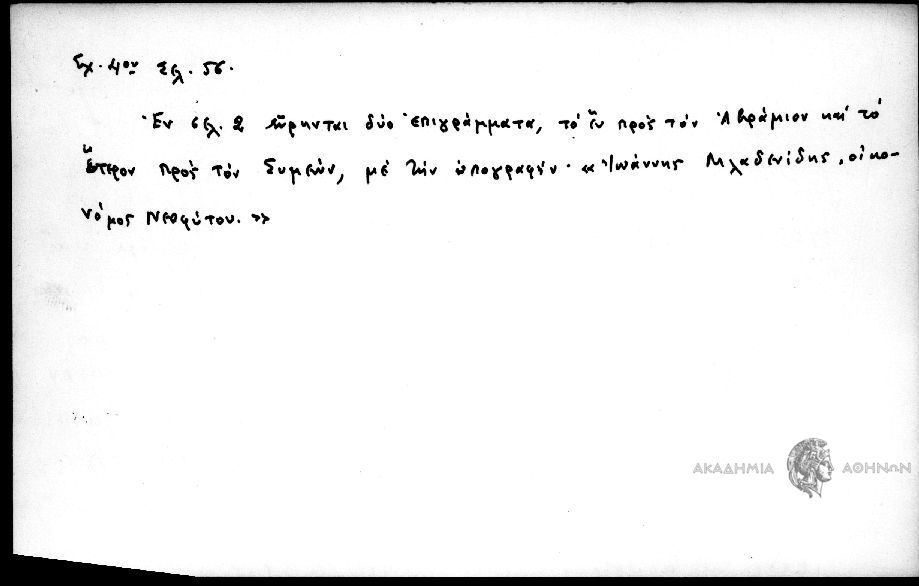 Σχ. 4ον Σελ. 56.
Ἐν σελ. 2 εὕρηνται δύο ἐπιγράμματα, τὸ ἓν πρὸς τὸν Ἀβράμιον καὶ τὸ
ἕτερον πρὸς τὸν Συμεών, μὲ τὴν ὑπογραφήν· «Ἰωάννης Μλαδενίδης, οἰκο-
νόμος Νεοφύτου.»
ΑΚΑΔΗΜΙΑ ΑΘΗΝΩΝ